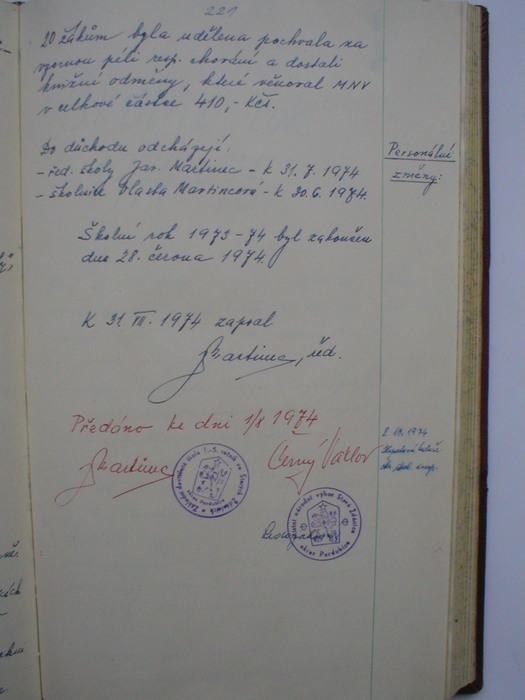 221
20 žákům byla udělena pochvala za
vzornou péči resp. chování a dostali
knižní odměny, které věnoval MNV
v celkové částce 410,- Kčs.
Do důchodu odcházejí:
Personální
změny:
- řed. školy Jar. Martinec - k 31. 7. 1974
- školnice Vlasta Martincová - k 30. 6. 1974.
Školní rok 1973-74 byl zakončen
dne 28. června 1974.
K 31. VII. 1974 zapsal
JMartinec, řed.
Předáno ke dni 1/8 1974
JMartinec
Černý Václav
Základní devítiletá škola 1.-5. ročník ve Starých Ždánicích
okres Pardubice
Místní národní výbor Staré Ždánice
okres Pardubice
1974